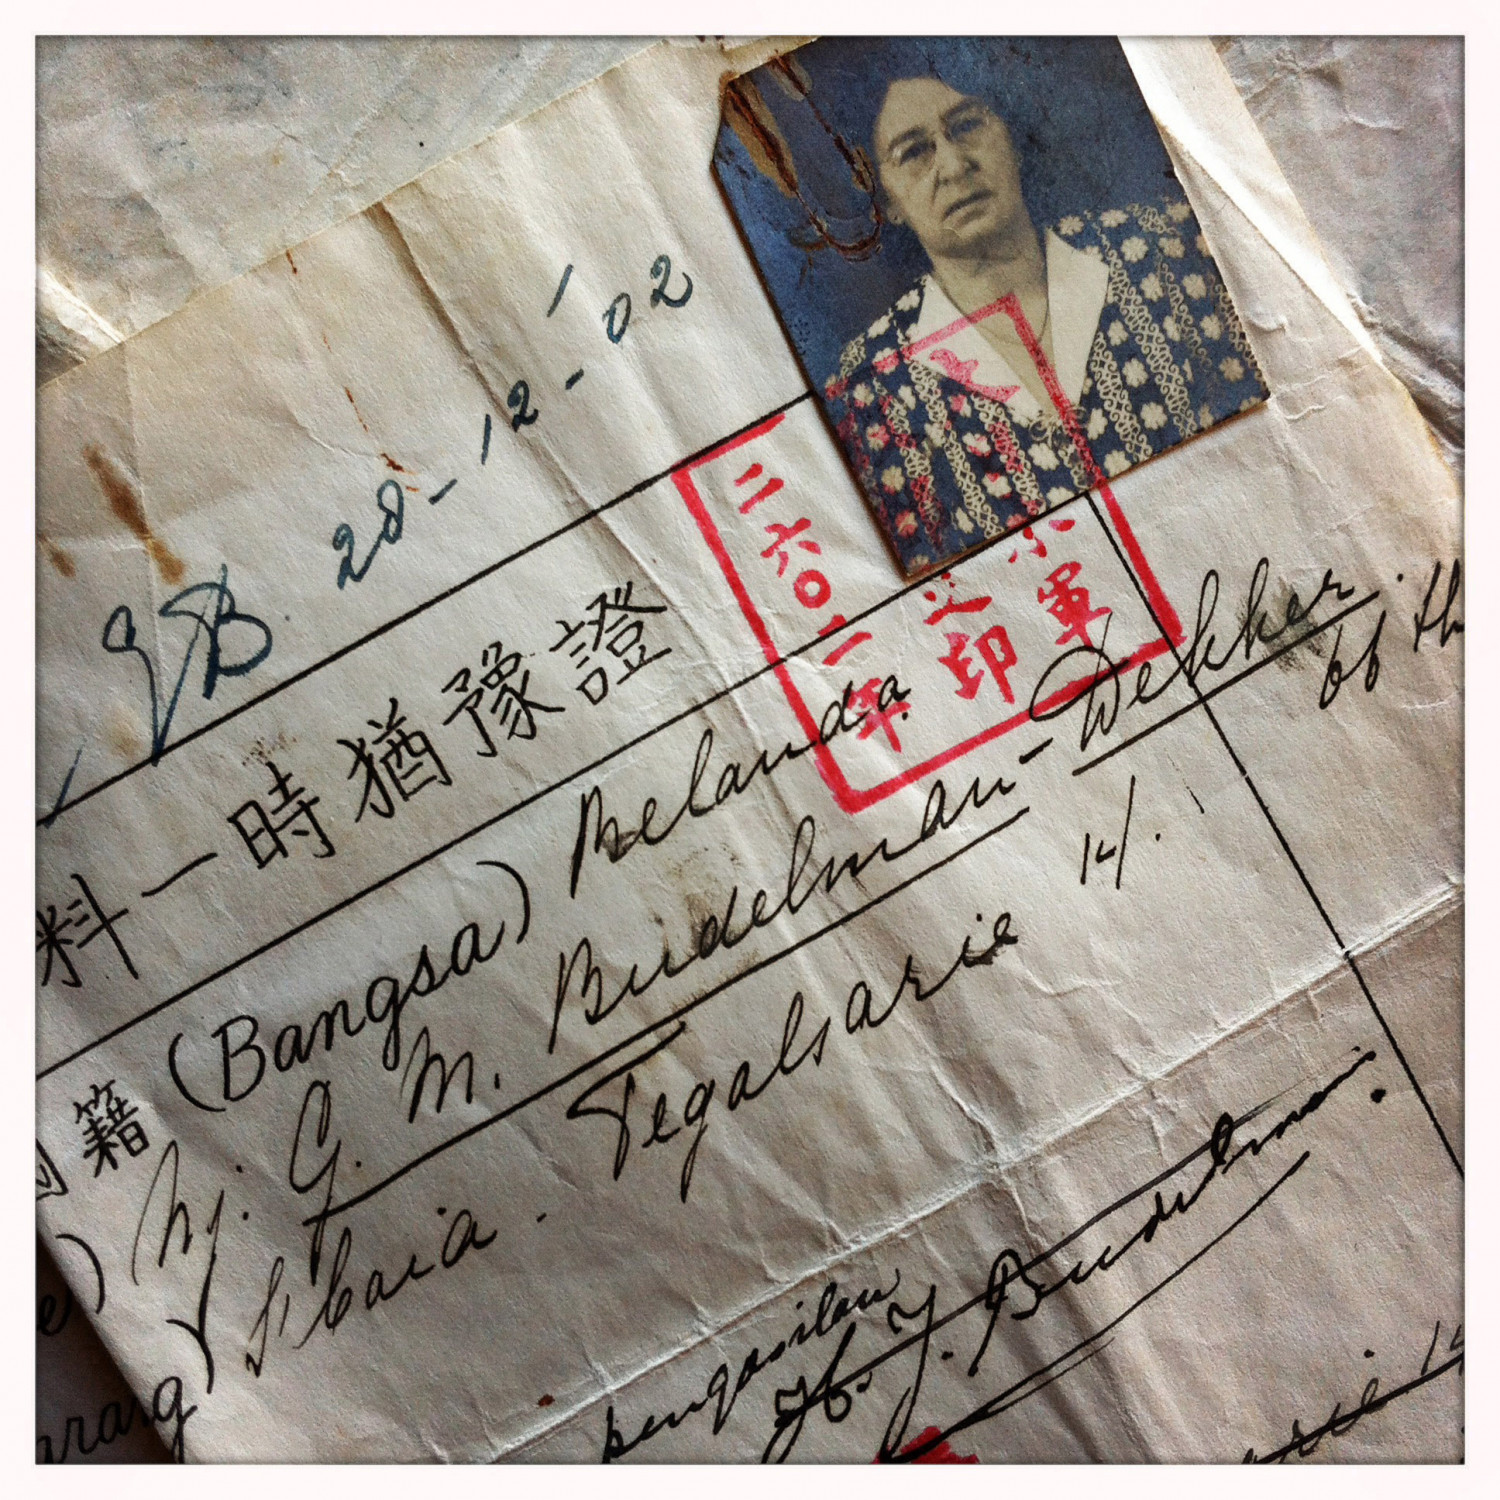 28-12-'02
料一時猶豫證
二六〇二年
軍
之印
籍 (Bangsa) Belanda.
Nj. G. M. Budelman-Dekker. 66 th
S'baia. Tegalsarie 14.
arang)
pengasilan
H. J. Budelman.
arie 14